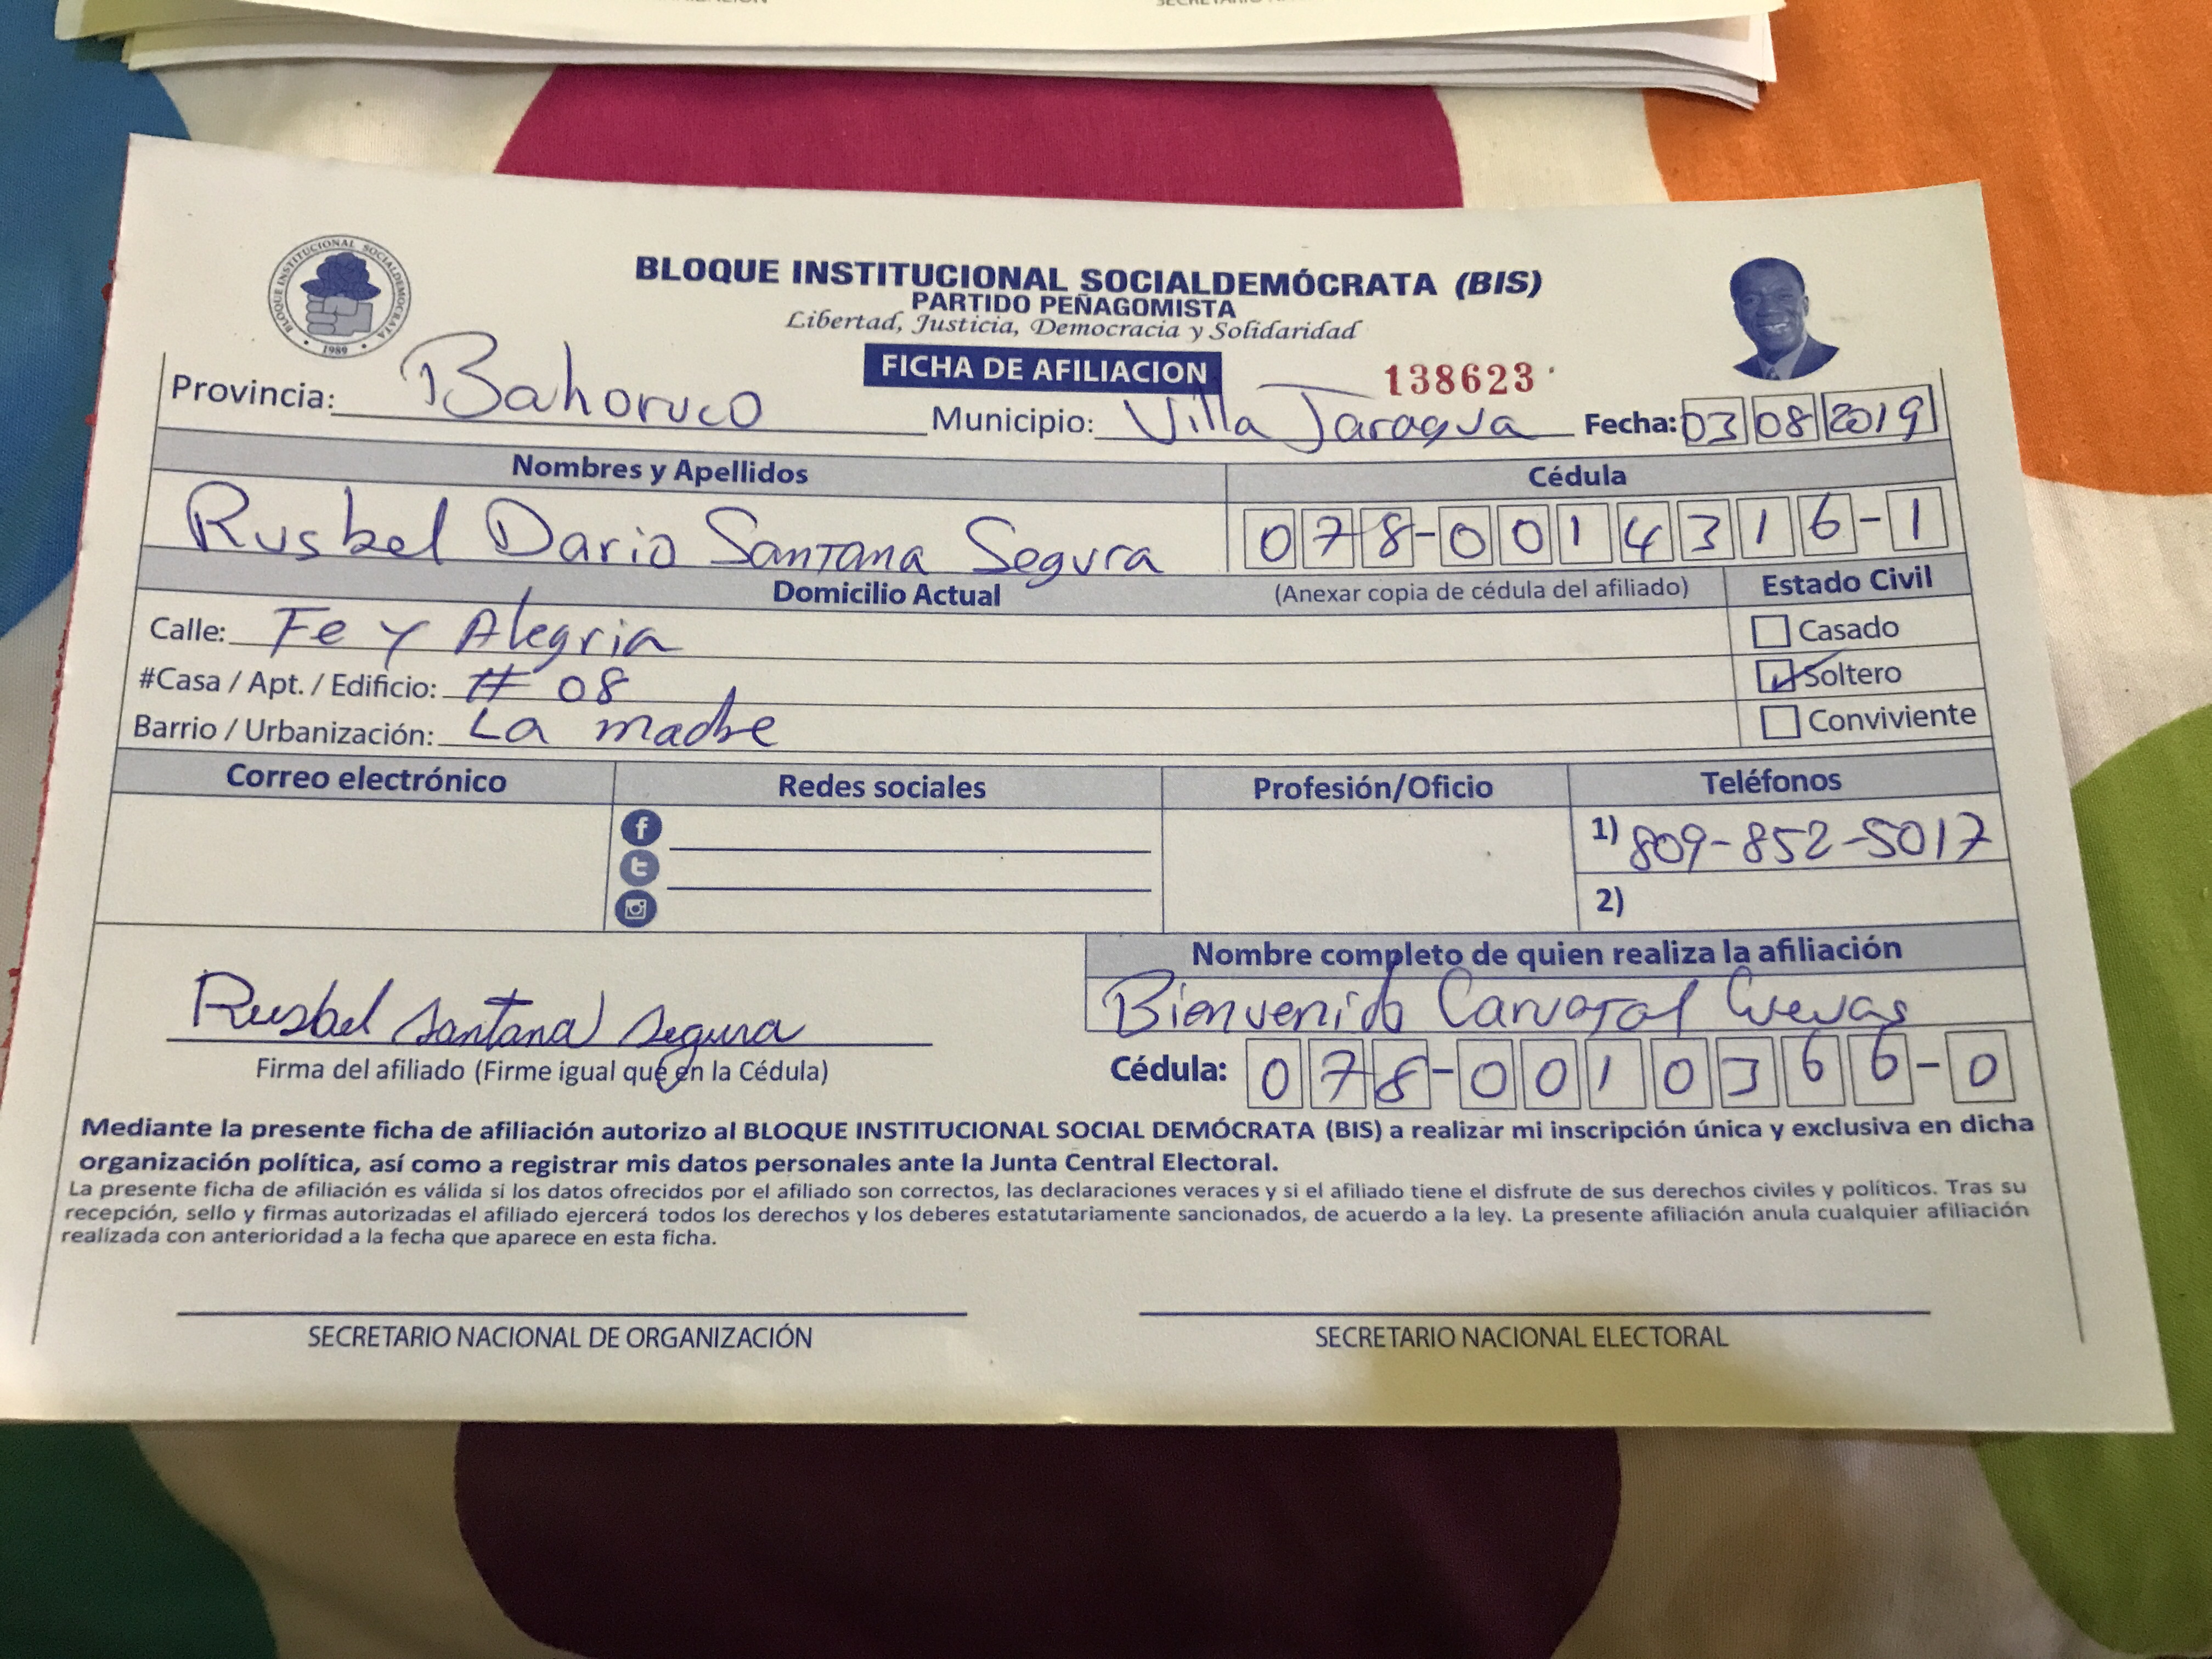 BLOQUE INSTITUCIONAL SOCIALDEMÓCRATA
1989
BLOQUE INSTITUCIONAL SOCIALDEMÓCRATA (BIS)
PARTIDO PEÑAGOMISTA
Libertad, Justicia, Democracia y Solidaridad
FICHA DE AFILIACION
138623
Provincia: Bahoruco Municipio: Villa Jaragua Fecha: 03 08 2019
Nombres y Apellidos Cédula
Rusbel Dario Santana Segura 078-0014316-1
Domicilio Actual (Anexar copia de cédula del afiliado) Estado Civil
Calle: Fe y Alegria Casado
#Casa / Apt. / Edificio: # 08 Soltero
Barrio / Urbanización: La madre Conviviente
Correo electrónico Redes sociales Profesión/Oficio Teléfonos
1) 809-852-5017
2)
Nombre completo de quien realiza la afiliación
Rusbel Santana Segura Bienvenido Carvajal Cuevas
Firma del afiliado (Firme igual que en la Cédula) Cédula: 078-0010366-0
Mediante la presente ficha de afiliación autorizo al BLOQUE INSTITUCIONAL SOCIAL DEMÓCRATA (BIS) a realizar mi inscripción única y exclusiva en dicha
organización política, así como a registrar mis datos personales ante la Junta Central Electoral.
La presente ficha de afiliación es válida si los datos ofrecidos por el afiliado son correctos, las declaraciones veraces y si el afiliado tiene el disfrute de sus derechos civiles y políticos. Tras su
recepción, sello y firmas autorizadas el afiliado ejercerá todos los derechos y los deberes estatutariamente sancionados, de acuerdo a la ley. La presente afiliación anula cualquier afiliación
realizada con anterioridad a la fecha que aparece en esta ficha.
SECRETARIO NACIONAL DE ORGANIZACIÓN SECRETARIO NACIONAL ELECTORAL